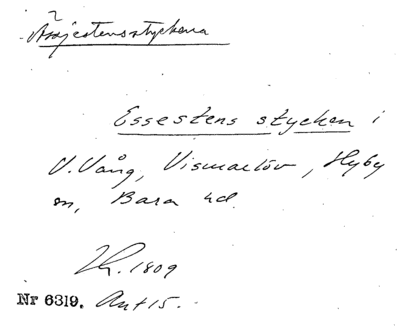 Essestens stycken i
V. Vång, Vismarlöv, Hyby
sn, Bara hd.
1809
Nr 6319. Ant 15.